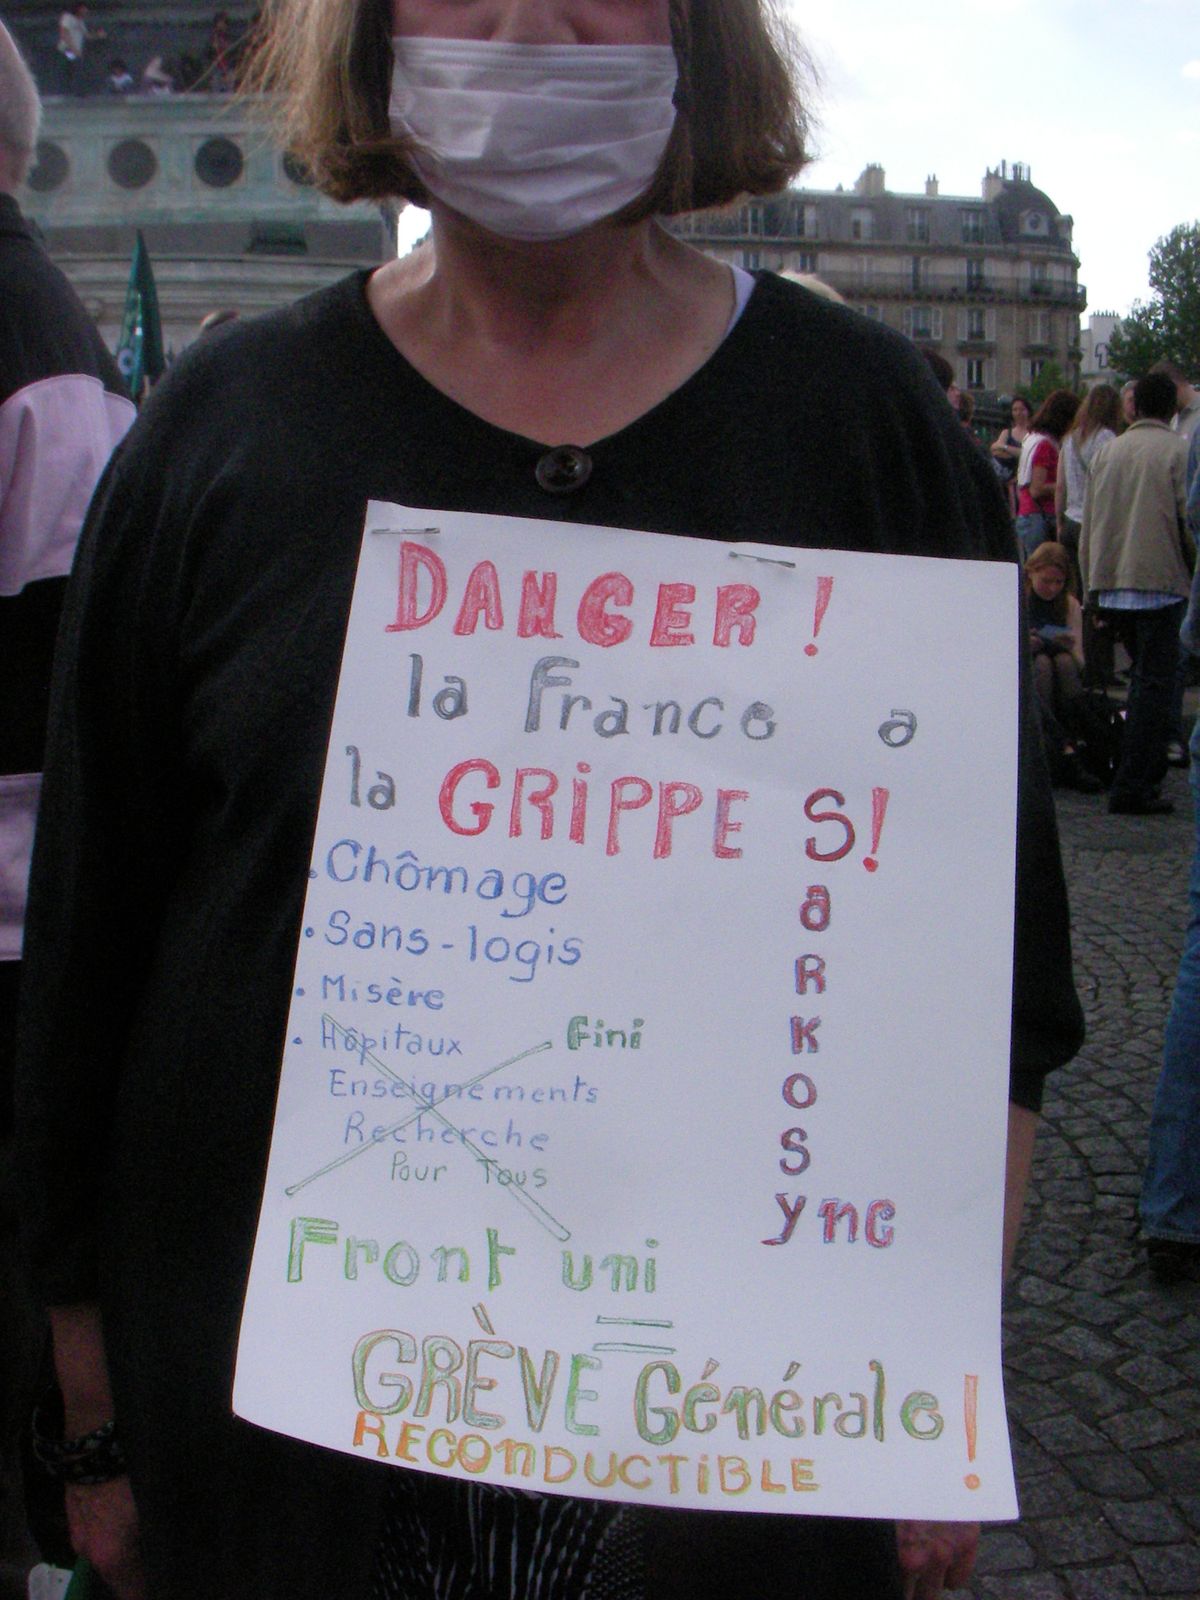 DANGER !
la France a
la GRiPPE S!
a
R
K
O
S
ync
. Chômage
. Sans-logis
. Misère
. Hôpitaux Fini
Enseignements
Recherche
Pour Tous
Front uni
=
GRÈVE Générale !
RECONDUCTiBLE